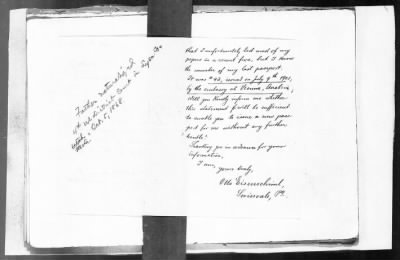 Father naturalized
4th Judicial Court in
Utah - Oct. 5, 1868
that I unfortunately lost most of my
papers in a recent fire, but I know
the number of my last passport.
It was # 43, issued on July 9th 1901,
by the embassy at Vienna, Austria.
Will you kindly inform me whether
this statement will be sufficient
to enable you to issue a new pass-
port for me without any further
trouble?
Thanking you in advance for your
information,
I am,
yours truly,
Otto Eisenschiml,
Swissvale, Pa.